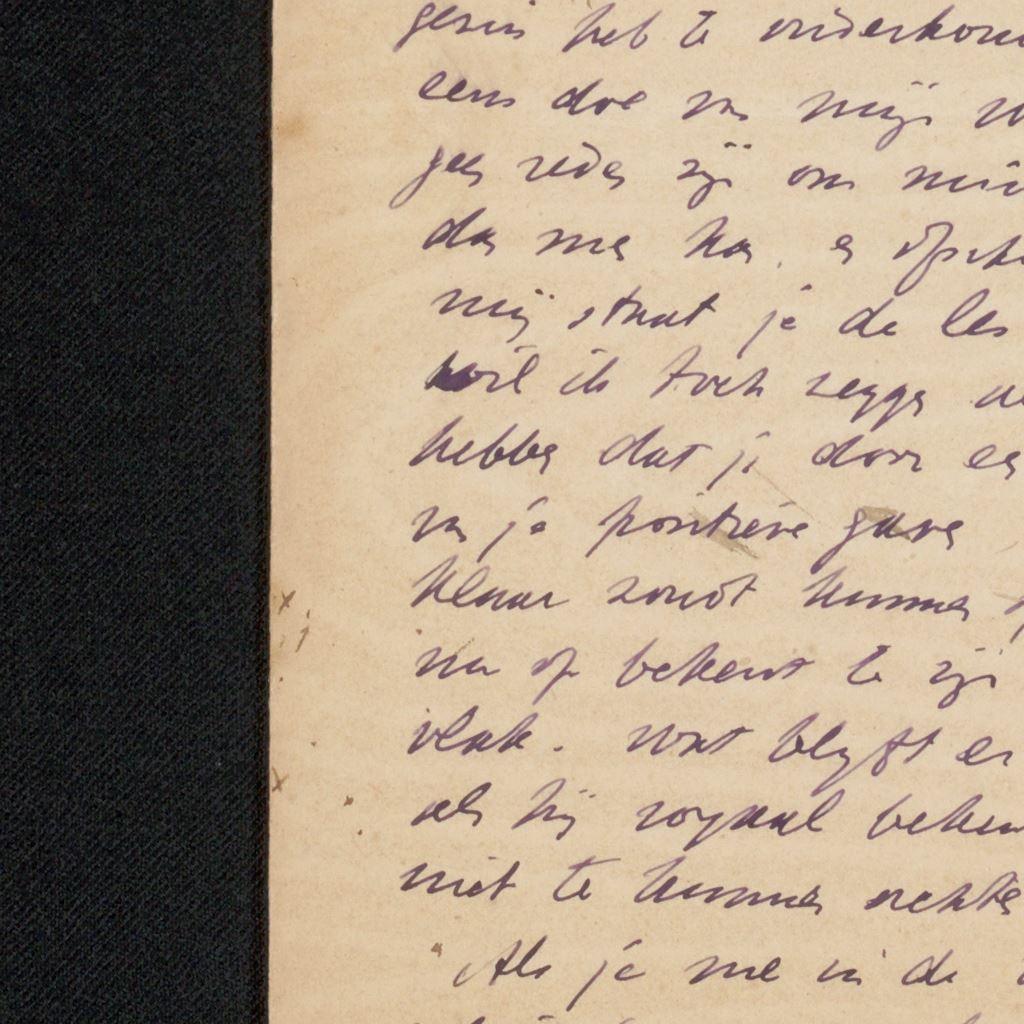 gezin heb te onderkom
eens doe van mijn
geen reden zijn om mij
dan me kan. en
mij staat je de les
wil ik toch zeggen
hebben dat je door een
van je positieve gave
klaar zoudt kunnen
na op bekent te zijn
vlak. Wat blijft er
als hij royaal beken
niet te kunnen
Als je me in de